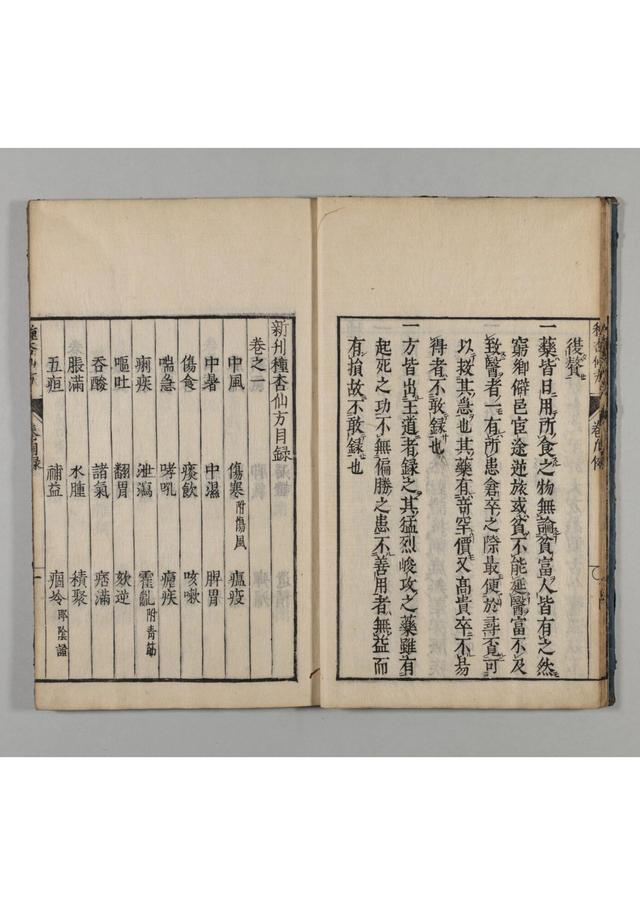 後贅
一藥皆日用所食之物無論貧富人皆有之然
窮鄉僻邑宦途逆旅或貧不能延醫富不及
致醫者一有所患倉卒之際最便於尋覓可
以救其急也其藥有奇罕價又高貴卒不易
得者不敢録也
一方皆出王道者録之其猛烈峻攻之藥雖有
起死之功不無偏勝之患不善用者無益而
有損故不敢録也
新刋種杏仙方目録
卷之一
中風 傷寒附傷風 瘟疫
中暑 中濕 脾胃
傷食 痰飲 咳嗽
喘急 哮吼 瘧疾
痢疾 泄瀉 霍亂附青筋
嘔吐 翻胃 欬逆
吞酸 諸氣 痞滿
脹滿 水腫 積聚
五疸 補益 痼冷
種杏仙方